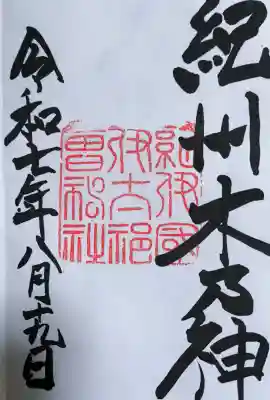 紀州木乃神
紀伊國
伊太祁
曽神社
令和七年八月十九日